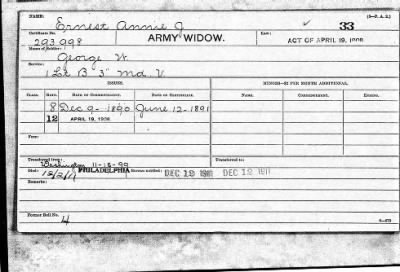 NAME: Ernest Annie J. 33 (3—P. A. 2.)
Certificate No. 293,998 ARMY WIDOW. Law: ACT OF APRIL 19, 1908
Name of Soldier: George W.
Service: 1 Lt B "3" Md V.
MINORS—$2 PER MONTH ADDITIONAL.
CLASS. RATE. DATE OF COMMENCEMENT. DATE OF CERTIFICATE. NAME. COMMENCEMENT. ENDING.
8 Dec 9- 1890 June 12-1891
12 APRIL 19, 1908
Fees:
Transferred from: Washington 11-15-99 Transferred to:
Died: 12/2/11 PHILADELPHIA Bureau notified: DEC 12 1911 DEC 12 1911
Remarks:
Former Roll No. 4